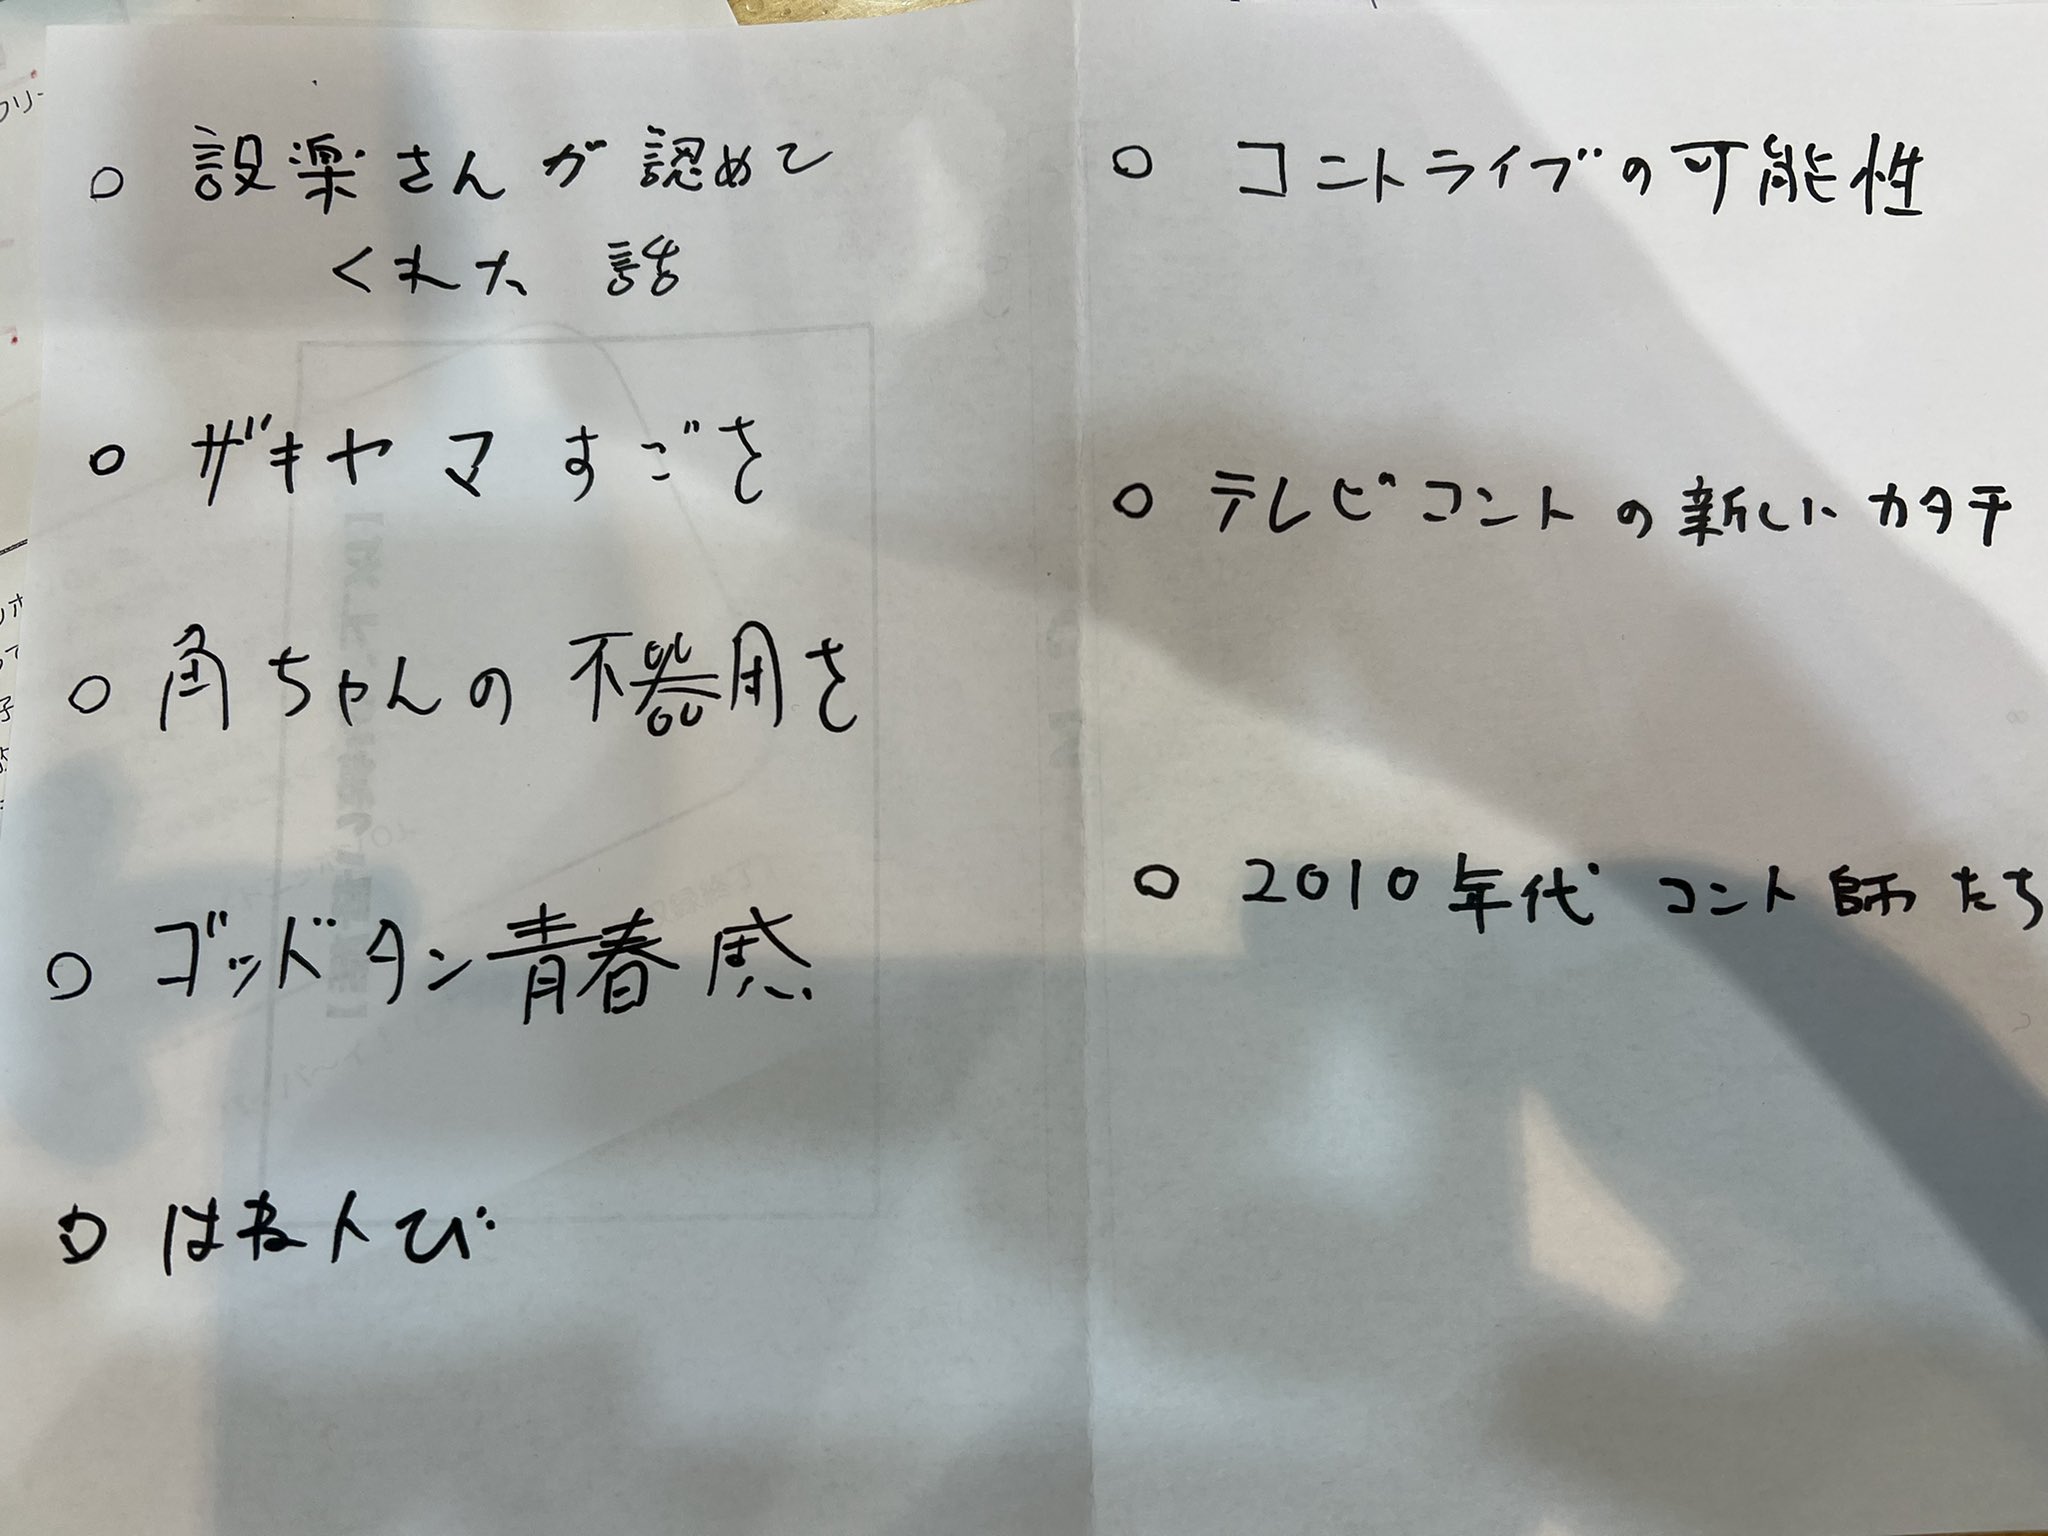 ○ 設楽さんが認めて
くれた 話
○ ザキヤマすごさ
○ 角ちゃんの不器用さ
○ ゴッドタン青春感
○ はねトび
○ コントライブの可能性
○ テレビコントの新しいカタチ
○ 2010年代コント師たち